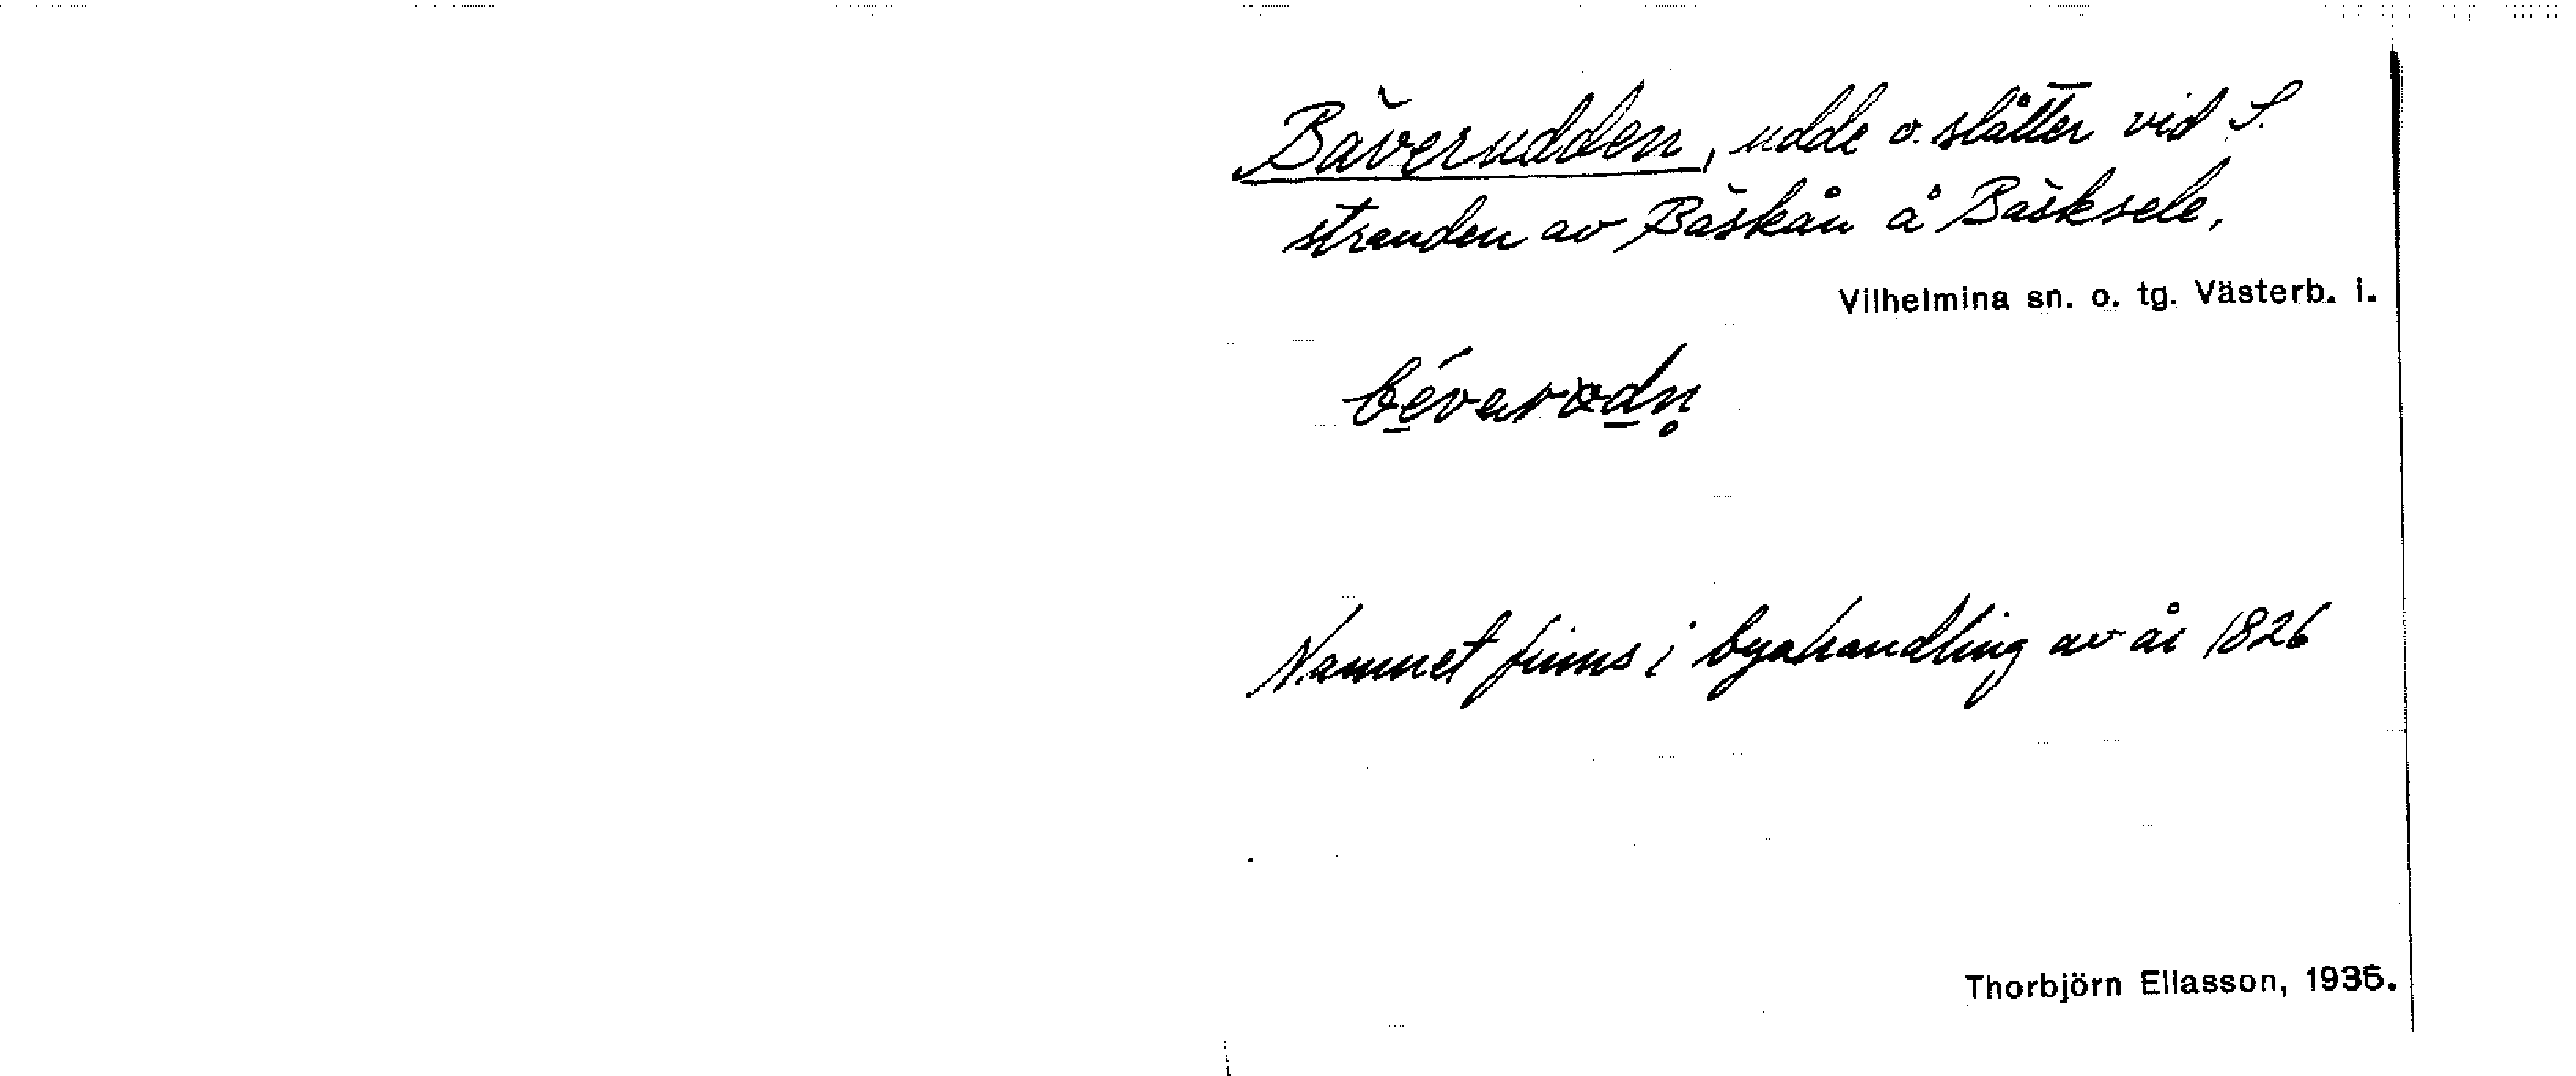 Bäverudden, udde o. slåtter vid S.
stranden av Bäskån å Bäsksele,
Vilhelmina sn. o. tg. Västerb. l.
Namnet finns i byahandling av år 1826
Thorbjörn Eliasson, 1935.